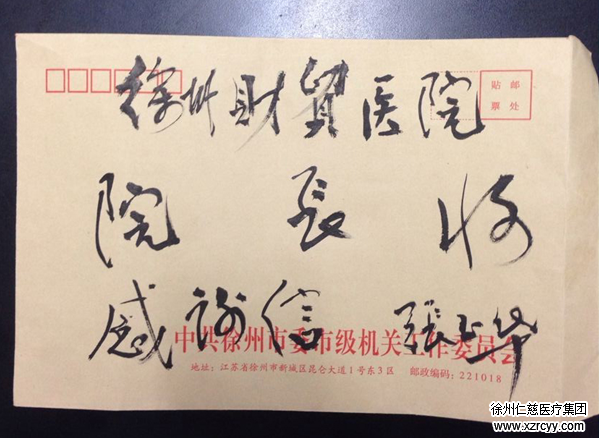 徐州财贸医院
贴邮
票处
院 長 收
感谢信 張正华
中共徐州市委市级机关工作委员会
地址：江苏省徐州市新城区昆仑大道1号东3区 邮政编码：221018
徐州仁慈医疗集团
www.xzrcyy.com